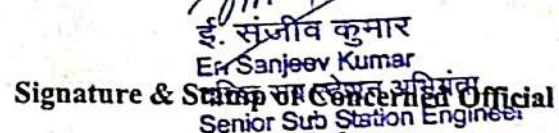 ई. संजीव कुमार
Er. Sanjeev Kumar
वरिष्ठ सब स्टेशन अभियंता
Signature & Stamp of Concerned Official
Senior Sub Station Engineer